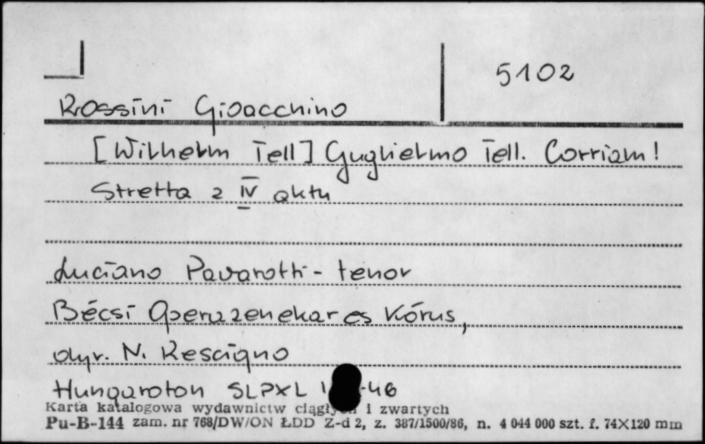 5102
Rossini Gioacchino
[Wilhelm Tell] Guglielmo Tell. Corriam!
Stretta z IV aktu
Luciano Pavarotti - tenor
Bécsi Operazenekar es Kórus,
dyr. N. Rescigno
Hungaroton SLPXL -46
Karta katalogowa wydawnictw ciągłych i zwartych
Pu-B-144 zam. nr 768/DW/ON ŁDD Z-d 2, z. 387/1500/86, n. 4 044 000 szt. f. 74X120 mm